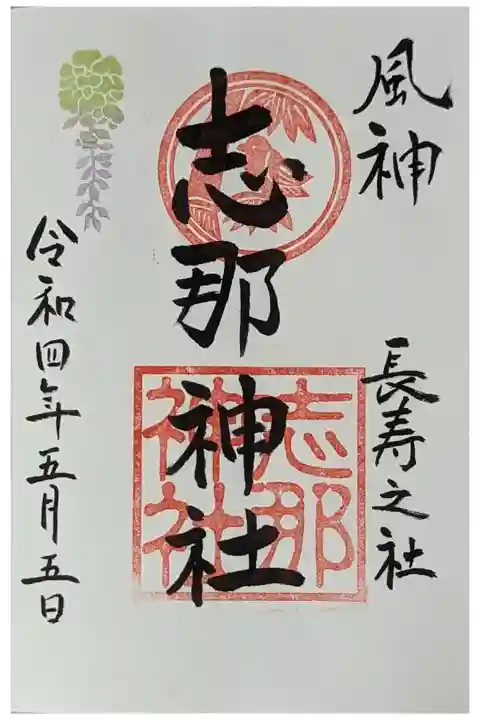 風神
長寿之社
志那神社
志那
神社
令和四年五月五日